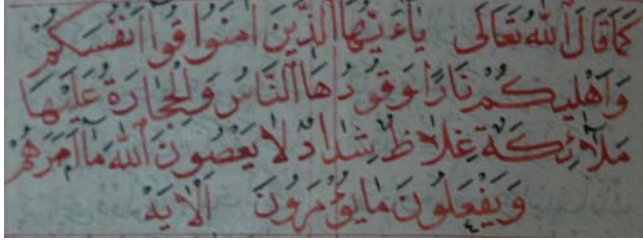 كَمَا قَالَ اللهُ تَعَالَى يَاءَيُّهَا الَّذِينَ اٰمَنُوا قُوا اَنْفُسَكُمْ
وَاَهْلِيكُمْ نَارًا وَقُودُهَا النَّاسُ وَالْحِجَارَةُ عَلَيْهَا
مَلٰٓائِكَةٌ غِلَاظٌ شِدَادٌ لَا يَعْصُونَ اللهَ مَا اَمَرَهُمْ
وَيَفْعَلُونَ مَا يُؤْمَرُونَ الْاٰيَةْ